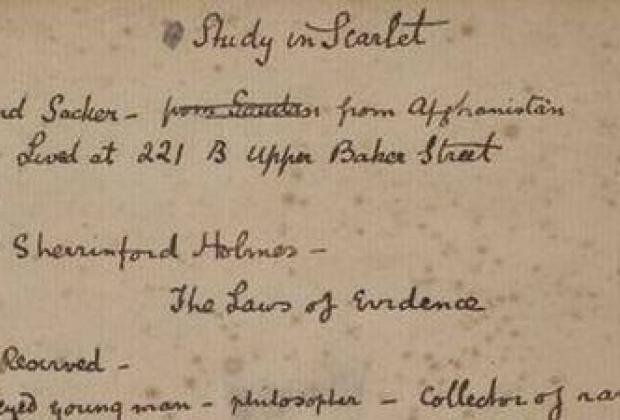 Study in Scarlet
nd Sacker - from Soudan from Afghanistan
Lived at 221 B Upper Baker Street
Sherrinford Holmes -
The Laws of Evidence
Reserved -
eyed young man - philosopher - Collector of ra